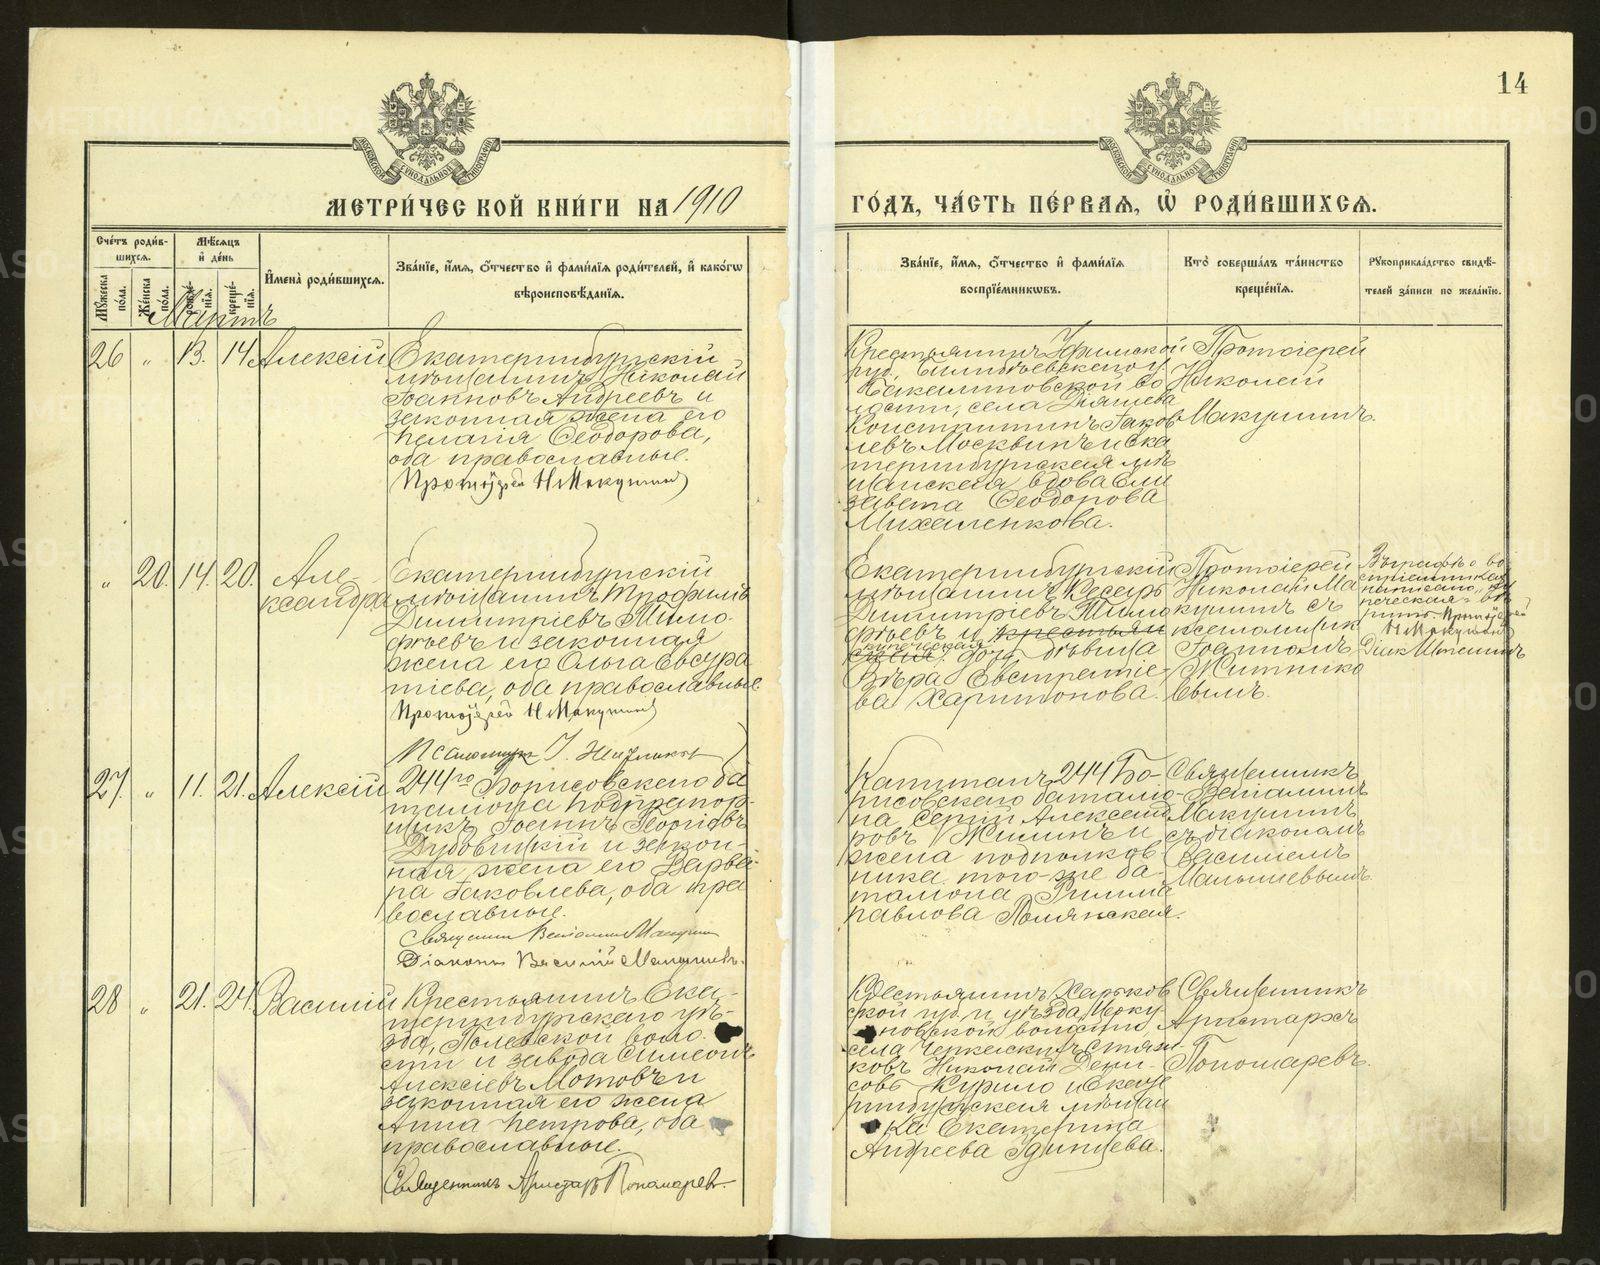 14
МЕТРИЧЕСКОЙ КНИГИ НА 1910
ГОДЪ, ЧАСТЬ ПЕРВАЯ, Ѡ РОДИВШИХСЯ.
Счетъ родив-
шихся.
Мужеска пола.
Женска пола.
Мѣсяцъ и день
рожде-нія.
креще-нія.
Имена родившихся.
Званіе, имя, отчество и фамилія родителей, и какогѡ
вѣроисповѣданія.
Званіе, имя, отчество и фамилія
воспріемникѡвъ.
Кто совершалъ таинство
крещенія.
Рукоприкладство свидѣ-
телей записи по желанію.
Мартъ
26 " 13. 14 Алексій
Екатеринбургскій
мѣщанинъ Николай
Іоанновъ Андреевъ и
законная жена его
Пелагія Ѳеодорова,
оба православные.
Протоіерей Н Макушин
Крестьянинъ Уфимской
губ.
Бакалинской во
лости, села Діяшева
Константинъ Іаков
левъ Москвинъ и Ека
теринбургская мѣ
щанская вдова Ели
завета Ѳеодорова
Михаленкова.
Протоіерей
Николай
Макушинъ.
" 20. 14. 20. Але
ксандра
Екатеринбургскій
мѣщанинъ Трофимъ
Димитріевъ Тимо
фѣевъ и законная
жена его Ольга Евсура
тіева, оба православные.
Протоіерей Н Макушин
Псаломщ І. Житников
Екатеринбургскій
мѣщанинъ Кесарь
Димитріевъ Тимо
фѣевъ и крестьян
купеческая
дочь дѣвица
Вѣра Евстратіе-
ва Харитонова.
Протоіерей
Николай Ма
кушинъ съ
псаломщик
Іоанномъ
Житнико
вымъ.
Въ графѣ о во
спріемникахъ
написано "ку
печеская" вѣ
рить. Протоіерей
Н Макушин
27. " 11. 21. Алексій
244го Борисовскаго ба
таліона подпрапор-
щикъ Іоаннъ Георгіевъ
Дубовицкій и закон-
ная жена его Варва-
ра Іаковлева, оба пра
вославные.
Священник Веніамин Макушин
Діаконъ Василій Малышевъ.
Капитанъ 244 Бо-
рисовскаго баталіо-
на Сергій Алексан
ровъ Жилинъ и
жена подполков
ника того-же ба-
таліона Римма
Павлова Полянская.
Священникъ
Веніаминъ
Макушинъ
съ діакономъ
Василіемъ
Малышевымъ.
28 " 21. 24. Василій
Крестьянинъ Ека-
теринбургскаго уѣ-
зда, Полевской воло.
сти и завода Симеонъ
Алексіевъ Мотовъ и
законная его жена
Анна Петрова, оба
православные.
Священникъ Аристарх Пономаревъ.
Крестьянинъ Харьков
ской губ. и уѣзда, Мерку
новской волости
села Черкаскихъ Тишк
ковъ Николай Дени-
совъ Курило и Екате
ринбургская мѣщан
ка Екатерина
Андреева Удинцева.
Священникъ
Аристархъ
Пономаревъ.